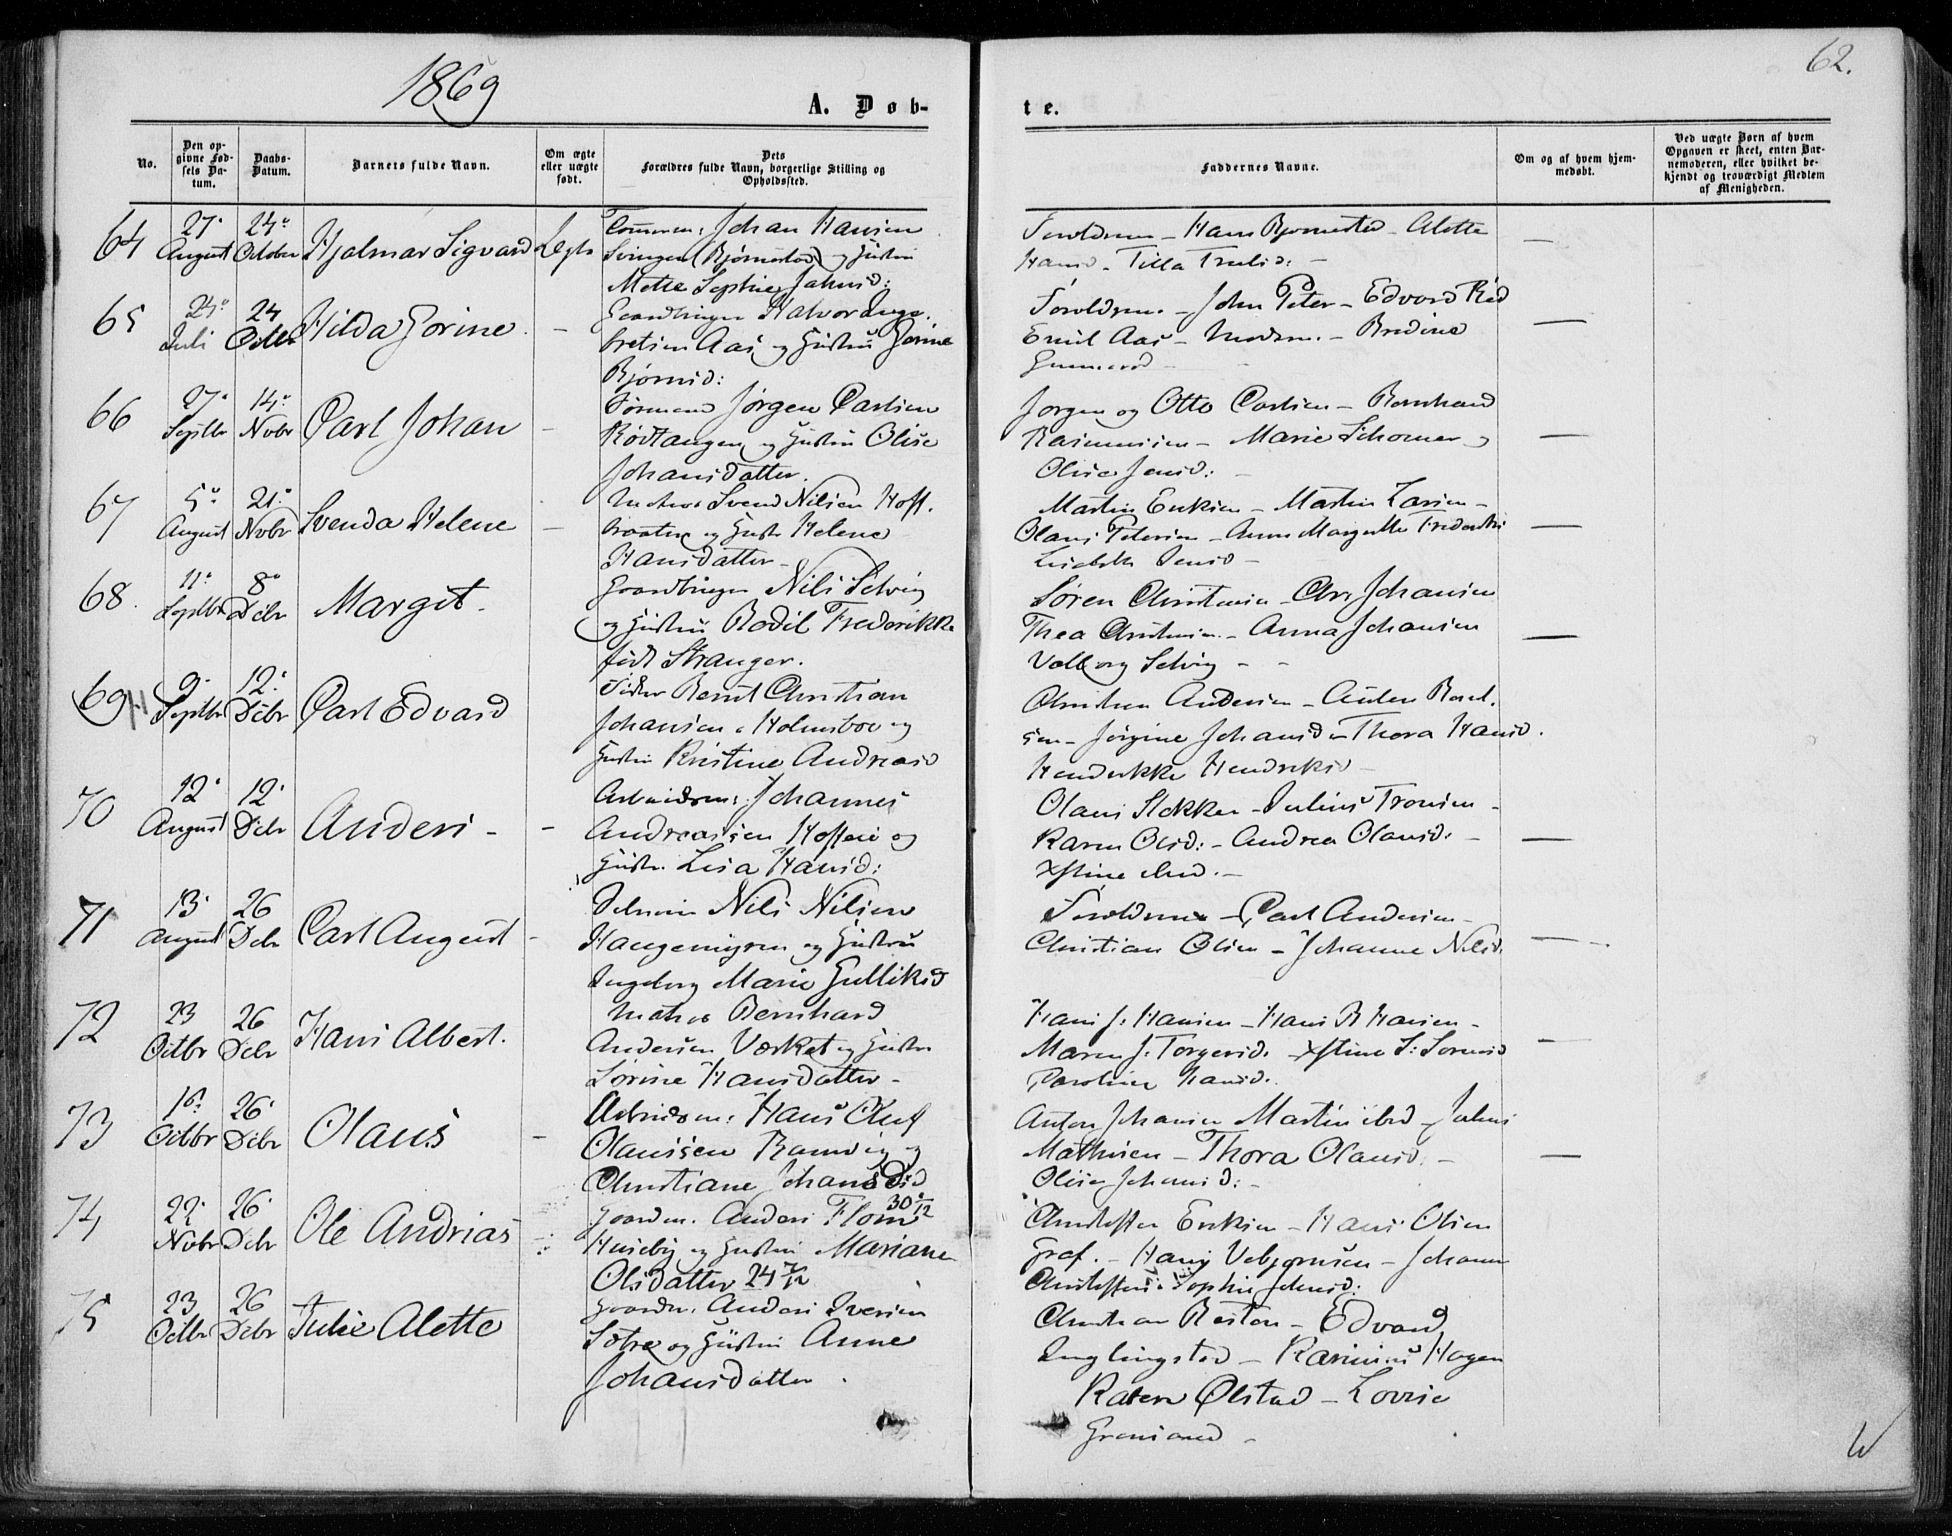 1869
62.
A. Døb-
te.
No.
Den opgivne Fødsels Datum.
Daabs-Datum.
Barnets fulde Navn.
Om ægte eller uægte født.
Dets Forældres fulde Navn, borgerlige Stilling og Opholdssted.
Faddernes Navne.
Om og af hvem hjemmedøbt.
Ved uægte Børn af hvem Opgaven er skeet, enten Barnemoderen, eller hvilket bekjendt og troværdigt Medlem af Menigheden.
64 27. August 24. October Hjalmar Sigvard Ægte
Johan Hansen
Svingen (Bjørnestad) og Hustru
Mette Sophie Jahnsd:
Forældrene - Hans Bjornestad - Alette
Hansd. Tilla Trulsd: -
65 24. Juli 24 Octbr Hilda Gorine -
Gaardbruger Halvor Inge-
bretsen Aas og Hustru Gorine
Bjørnsd:
Forældrene - John Peter - Edvard Rød
Emil Aas - Moderen - Bredine
66 27. Septbr 14. Novbr Carl Johan -
Jørgen Carlsen
Rødtangen og Hustru Olise
Johansdatter.
Jørgen og Otto Carlsen - Bernhard
Rasmussen - Marie Schomer og
Olise Jensd: -
67 5. August 21. Novbr Svenda Helene -
Matros Svend Nilsen Hoff-
braaten og Hustr Helene
Hansdatter -
Martin Eriksen - Martin Larsen -
Olaus Petersen - Anne Margrethe Frederiks
Lisebeth Jensd -
68. 11. Septbr 8. Decbr Margit -
Gaardbruger Nils Selvig
og Hustru Bodil Frederikke
født Stranger.
Søren Christensen - Chr. Johansen
Thea Christensen - Anna Johansen
Valborg Selvig - -
69 9. Septbr 12. Decbr Carl Edvard
Fisker Bernt Christian
Johansen Holmsboe og
Hustru Kristine Andreasd
Christian Andersen - Anders Bernt-
sen - Jørgine Johansd - Thora Hansd.
Hendrikke Hendriksd -
70 12. August 12. Decbr Anders - -
Arbeidsm: Johannes
Andreassen Hoffen og
Hustr. Lisa Hansd:
Olaus Stokker - Julius Tronsen -
Karen Olsd: - Andrea Olausd: -
Xstine ibid. -
71 13. August 26 Decbr Carl August -
Nils Nilsen
Haugemyren og Hustru
Ingeborg Marie Gulliksd
Forældrene - Carl Andersen -
Christian Olsen - Johanne Nilsd.
72 23 Octbr 26 Decbr Hans Albert.
Matros Bernhard
Andersen Værket og Hustru
Sorine Hansdatter -
Hans J. Hansen - Hans B Hansen -
Maren J. Torgersd. - Xstine S: Sorensd
Caroline Hansd.
73 16. Octbr 26. Decbr Olaus -
Arbeidsm: Hans Oluf
Olaussen Ramvig og
Christiane Johansd
Anton Johansen Martin ibid - Julius
Mathisen - Thora Olausd. -
Olise Johansd: -
74 22. Novbr 26. Decbr Ole Andrias
Gaardm. Anders Flom 30 6/12
Huseby og Hustru Mariane
Olsdatter 24 7/12
Christoffer Eriksen - Hans Olsen
Graf. - Hans Vebjørnsen - Johanne
Christoffersd. Sophie Johnsd:
75 23 Octbr 26 Decbr Julie Alette
Gaardm. Anders Iversen
Sætre og Hustru Anne
Johansdatter.
Christian Røstan - Edvard
Englingstad - Rasmus Hagen
Karen Ølstad - Lovise
Grønsand -